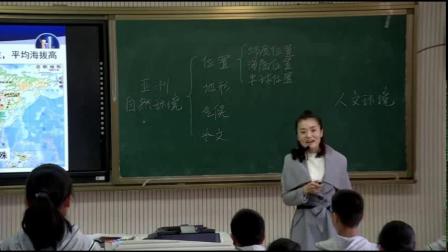 ，平均海拔高
殊
亚洲
自然环境
位置
纬度位置
海陆位置
半球位置
地形
气候
水文
人文环境